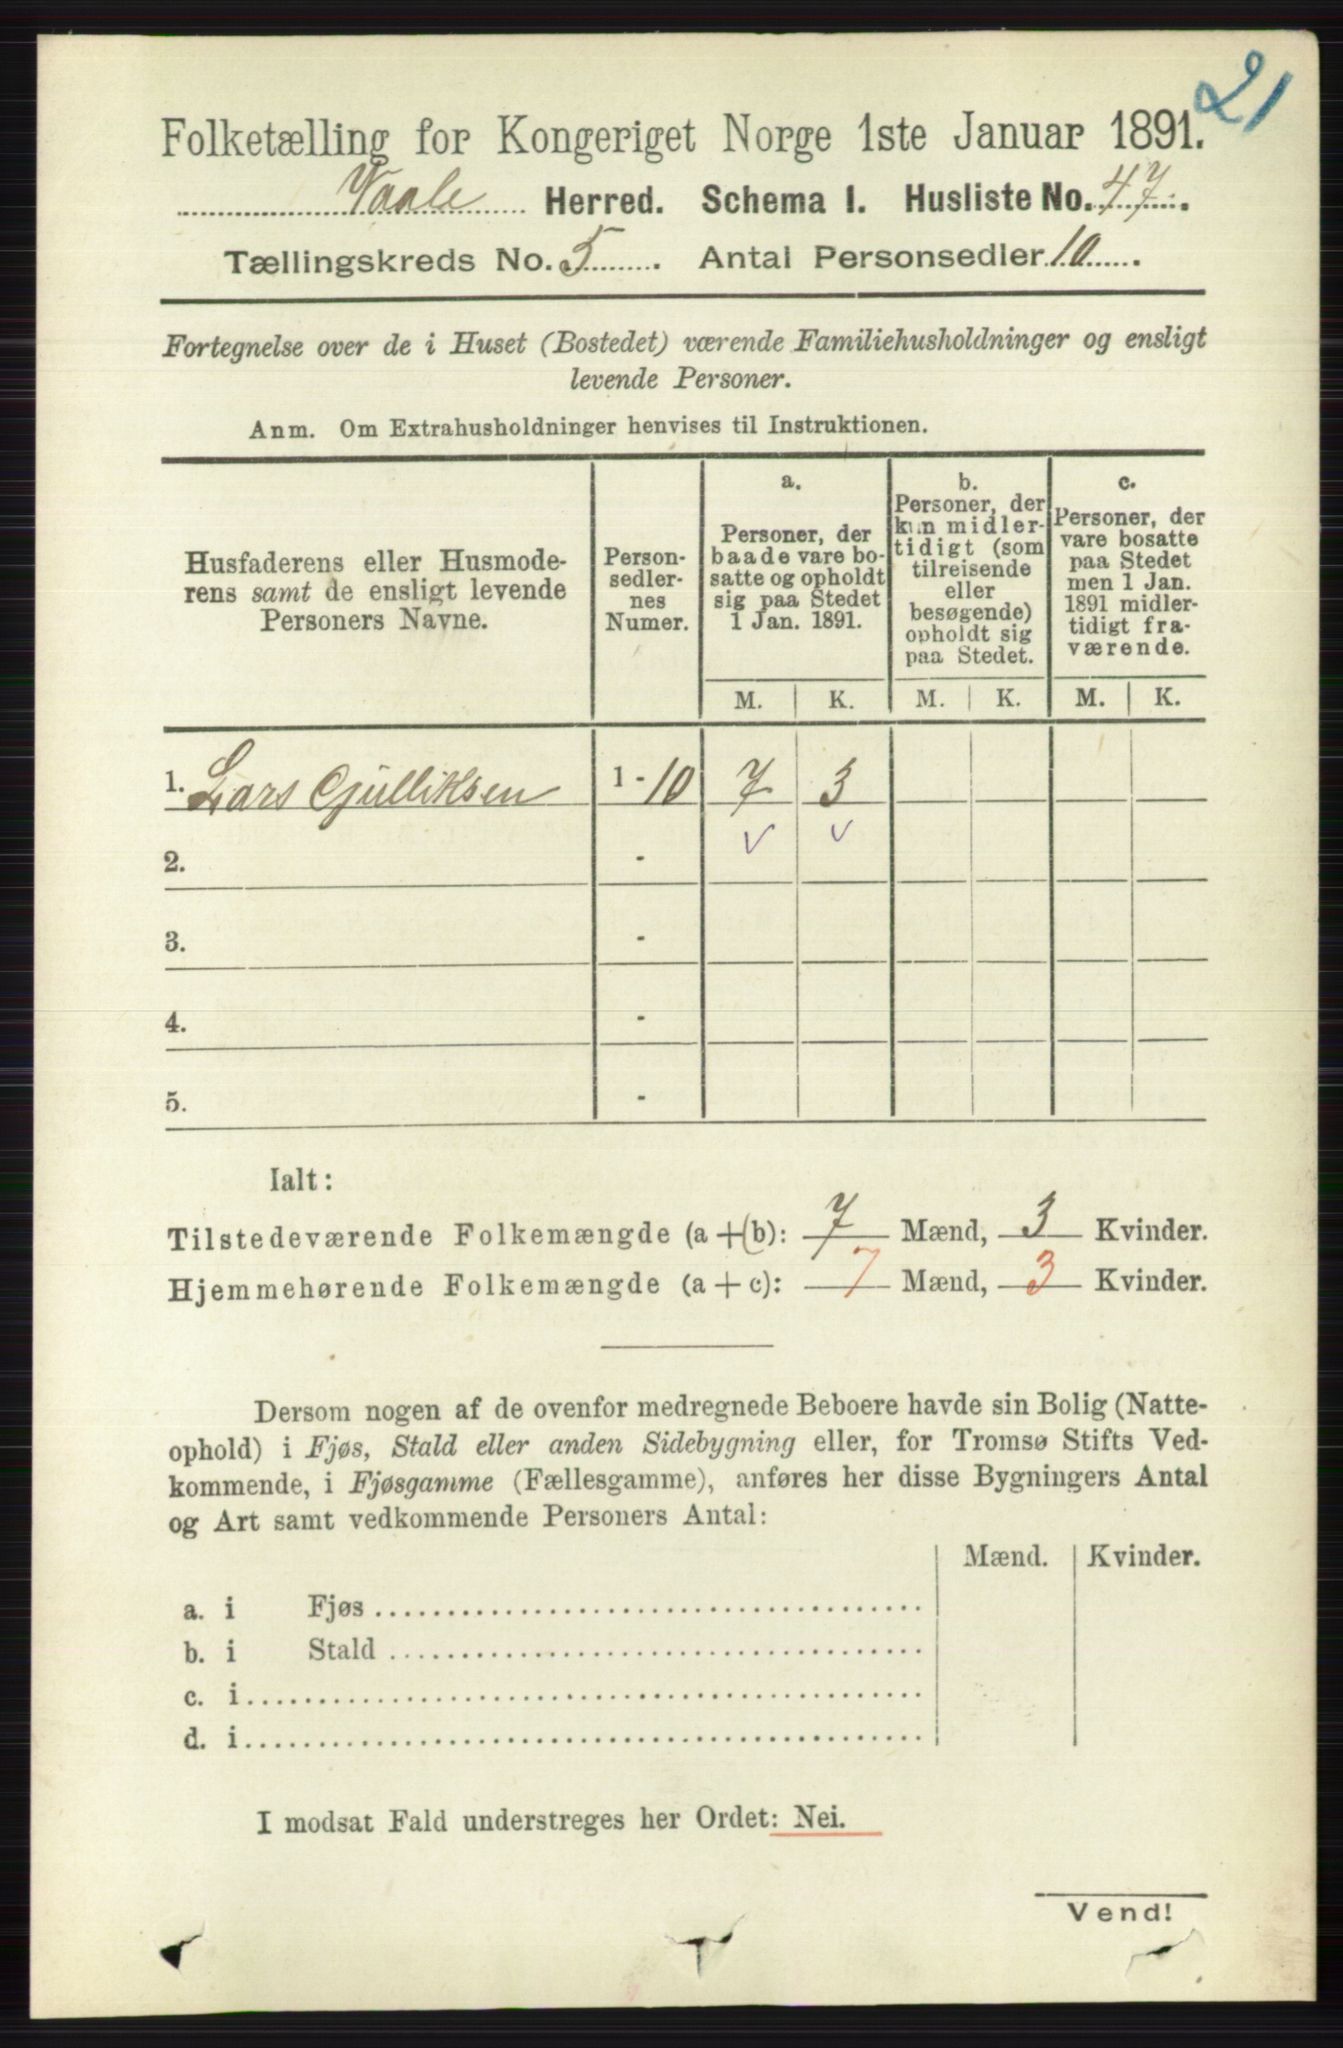 21
Folketælling for Kongeriget Norge 1ste Januar 1891.
Vaale Herred. Schema I. Husliste No. 47.
Tællingskreds No. 5. Antal Personsedler 10.
Fortegnelse over de i Huset (Bostedet) værende Familiehusholdninger og ensligt
levende Personer.
Anm. Om Extrahusholdninger henvises til Instruktionen.
Husfaderens eller Husmode-
rens samt de ensligt levende
Personers Navne.
Person-
sedler-
nes
Numer.
a.
Personer, der
baade vare bo-
satte og opholdt
sig paa Stedet
1 Jan. 1891.
b.
Personer, der
kun midler-
tidigt (som
tilreisende
eller
besøgende)
opholdt sig
paa Stedet.
c.
Personer, der
vare bosatte
paa Stedet
men 1 Jan.
1891 midler-
tidigt fra-
værende.
M. K. M. K. M. K.
1. Lars Gulliksen 1 - 10 7 3
2. - v v
3. -
4. -
5. -
Ialt:
Tilstedeværende Folkemængde (a+b): 7 Mænd, 3 Kvinder.
Hjemmehørende Folkemængde (a+c): 7 Mænd, 3 Kvinder.
Dersom nogen af de ovenfor medregnede Beboere havde sin Bolig (Natte-
ophold) i Fjøs, Stald eller anden Sidebygning eller, for Tromsø Stifts Ved-
kommende, i Fjøsgamme (Fællesgamme), anføres her disse Bygningers Antal
og Art samt vedkommende Personers Antal:
Mænd. Kvinder.
a. i Fjøs
b. i Stald
c. i
d. i
I modsat Fald understreges her Ordet: Nei.
Vend!